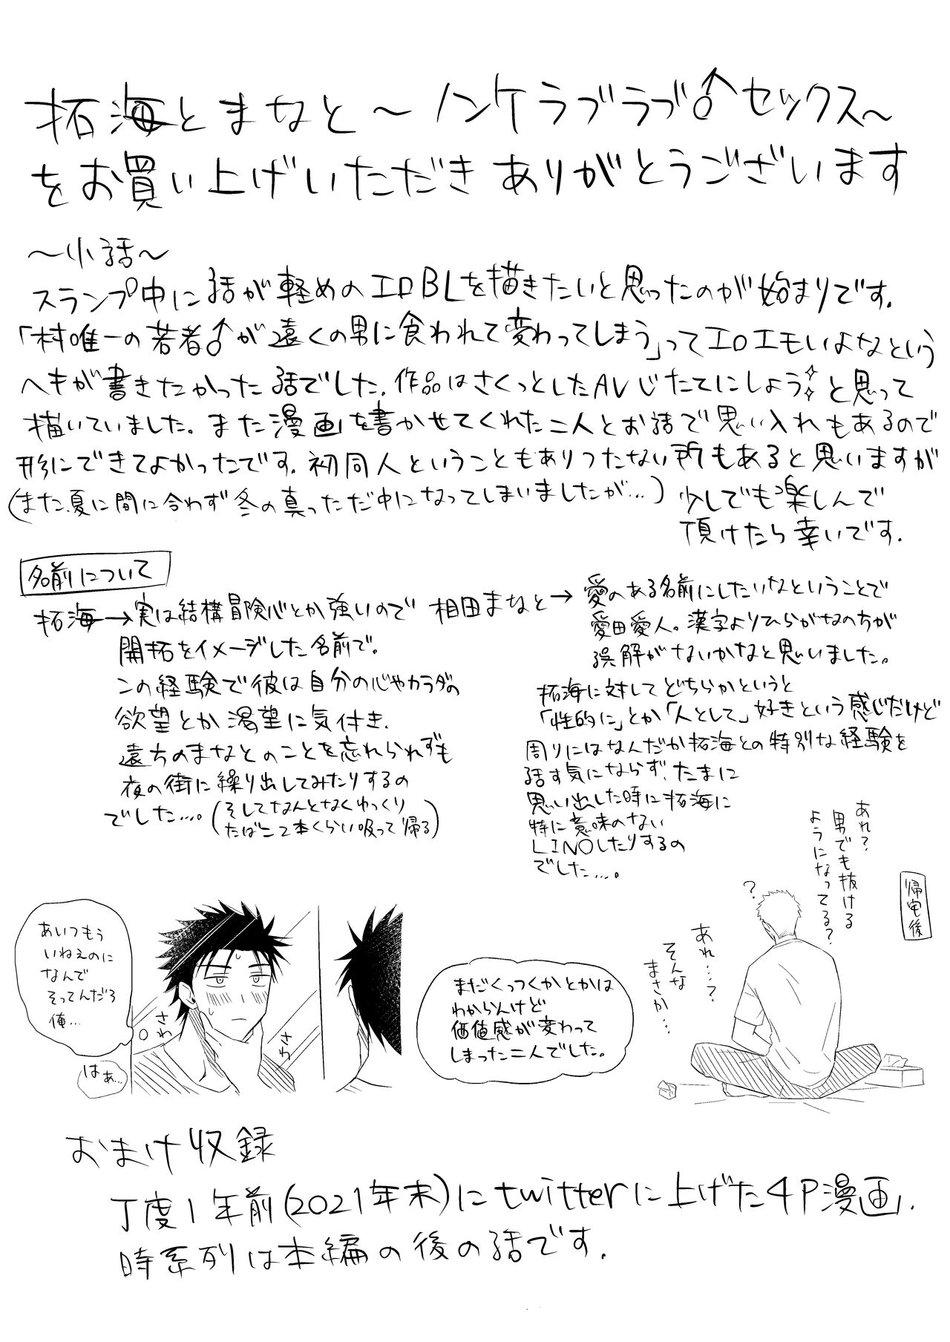 拓海とまなと～ノンケラブラブ♂セックス～
をお買い上げいただきありがとうございます
～小話～
スランプ中に話が軽めのエロBLを描きたいと思ったのが始まりです.
「村唯一の若者♂が遠くの男に食われて変わってしまう」ってエロエモいよなという
ヘキが書きたかった話でした.作品はさくっとしたAVじたてにしよう✧と思って
描いていました.また漫画を書かせてくれた二人とお話で思い入れもあるので
形にできてよかったです.初同人ということもありつたない所もあると思いますが
(また夏に間に合わず冬の真っただ中になってしまいましたが…)少しでも楽しんで
頂けたら幸いです.
名前について
拓海→実は結構冒険心とか強いので
開拓をイメージした名前で。
この経験で彼は自分の心やカラダの
欲望とか渇望に気付き.
遠方のまなとのことを忘れられずも
夜の街に繰り出してみたりするの
でした…。(そしてなんとなくゆっくり
たばこ2本くらい吸って帰る)
相田まなと→愛のある名前にしたいなということで
愛田愛人。漢字よりひらがなの方が
誤解がないかなと思いました。
拓海に対してどちらかというと
「性的に」とか「人として」好きという感じだけど
周りにはなんだか拓海との特別な経験を
話す気にならず.たまに
思い出した時に拓海に
特に意味のない
LINOしたりするの
でした…。
あいつもう
いねえのに
なんで
そってんだろ
俺…
はぁ…
さわ
さわ
まだくっつくかとかは
わからんけど
価値感が変わって
しまった二人でした。
帰宅後
あれ?
男でも抜ける
ようになってる?
?
あれ…?
そんな
まさか…
おまけ収録
丁度1年前(2021年末)にtwitterに上げた4P漫画.
時系列は本編の後の話です.